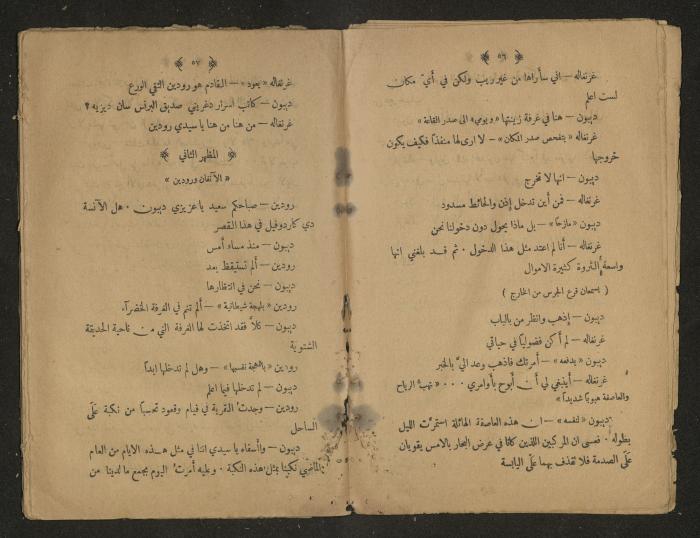 ﴿ ٥٦ ﴾
غرنفاله — اني سأراها من غير ريب ولكن في أيّ مكان
لست اعلم
ديبون — هنا في غرفة زينتها « ويومي الى صدر القاعة »
غرنفاله « يتفحص صدر المكان » — لا ارى لها منفذًا فكيف يكون
خروجها
ديبون — انها لا تخرج
غرنفاله — فمن أين تدخل إذن والحائط مسدود
ديبون « مازحًا » — بل ماذا يحول دون دخولنا نحن
غرنفاله — أنا لم اعتد مثل هذا الدخول ٠ ثم قد بلغني انها
واسعة الثروة كثيرة الاموال
( يسمعان قرع الجرس من الخارج )
ديبون — إذهب وانظر من بالباب
غرنفاله — لم أكن فضوليًا في حياتي
ديبون « يدفعه » — أمرتك فاذهب وعد اليَّ بالخبر
غرنفاله — أينبغي لي أن أبوح بأوامري ٠٠٠ « تهبّ الرياح
والعاصفة هبوبًا شديدًا »
ديبون « لنفسه » — ان هذه العاصفة الهائلة استمرَّت الليل
بطوله ٠ فعسى ان المركبين اللذين كانا في عرض البحار بالامس يقويان
علَى الصدمة فلا تقذف بهما علَى اليابسة
﴿ ٥٧ ﴾
غرنفاله « يعود » — القادم هو رودين التقي الورع
ديبون — كاتب اسرار دغريني صديق البرنس سان ديزيه ؟
غرنفاله — من هنا من هنا يا سيدي رودين
﴿ المظهر الثاني ﴾
« الآنفان ورودين »
رودين — صباحكم سعيد يا عزيزي ديبون ٠ هل الآنسة
دي كاردوفيل في هذا القصر
ديبون — منذ مساء أمس
رودين — ألم تستيقظ بعد
ديبون — نحن في انتظارها
رودين « بلهجة شيطانية » — ألم تنم في الغرفة الخضرآء
ديبون — كلاَّ فقد اتخذت لها الغرفة التي من ناحية الحديقة
الشتوية
رودين « باللهجة نفسها » — وهل لم تدخلها ابدًا
ديبون — لم تدخلها فيما اعلم
رودين — وجدت القرية في قيام وقعود تحسبًا من نكبة علَى
الساحل
ديبون — واأسفاه يا سيدي اننا في مثل هذه الايام من العام
الماضي نكبنا بمثل هذه النكبة ٠ وعليه أمرت اليوم بجمع ما لدينا من